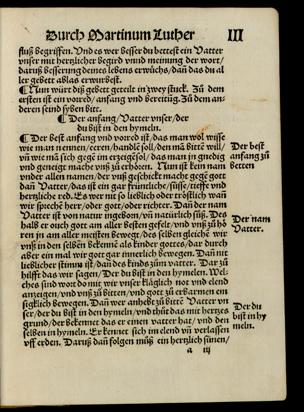 Durch Martinum Luther III
fluß begriffen. Vnd es wer besser du bettest ein Vatter
vnser mit herzlicher begird vnnd meinung der wort/
daruß besserung deines lebens erwüchs/dañ das du al
ler gebett ablas erwurbest.
¶ Nun würt diß gebett geteilt in zwey stuck. Zů dem
ersten ist ein vorred/ anfang vnd bereitüg. Zů dem an
deren seind syben bitt.
¶ Der anfang/Vatter vnser/der
du bist in den hymeln.
¶ Der best anfang vnd vorred ist/das man wol wisse
wie man nennen/eeren/handlē soll/den mā bittē will/
vñ wie mā sich gegē im erzeigē sol/ das man jn gnedig
vnd geneigt mache vnß zů hören. Nun ist kein nam
vnder allen namen/der vnß geschickt macht gegē gott
dañ Vatter/das ist ein gar früntliche/süsse/tieffe vnd
herzliche red. Es wer nit so lieblich oder tröstlich wañ
wir sprechē herr/oder gott/oder richter. Dañ der nam
Vatter ist von natur ingeborn/vñ natürlich süß. Des
halb er ouch gott am aller besten gefelt/vnd vnß zů hö
ren jn am aller meisten bewegt/des selben gleichē wir
vnß in den selben bekennē als kinder gottes/dar durch
aber ein mal wir gott gar innerlich bewegen. Dañ nit
lieblicher stimm ist/dañ des kinds zům vatter. Dar zů
hilfft das wir sagen/Der du bist in den hymelen. Wel-
ches sind wort do mit wir vnser kläglich not vnd elend
anzeigen/vnd vnß zů bitten/vnd gott zů erbarmen ein
figklich bewegen. Dañ wer anhebt zů bittē Vatter vn
ser/der du bist in den hymelen/vnd thůt das mit hertzes
grund/der bekennet das er einen vatter hat/vnd den
selben in hymeln. Er kennet sich im elend vñ verlassen
vff erden. Daruß dañ folgen můß ein herzlich sünen/
a iij
Der best
anfang zů
betten
Der nam
Vatter.
Der du
bist in hy
meln.